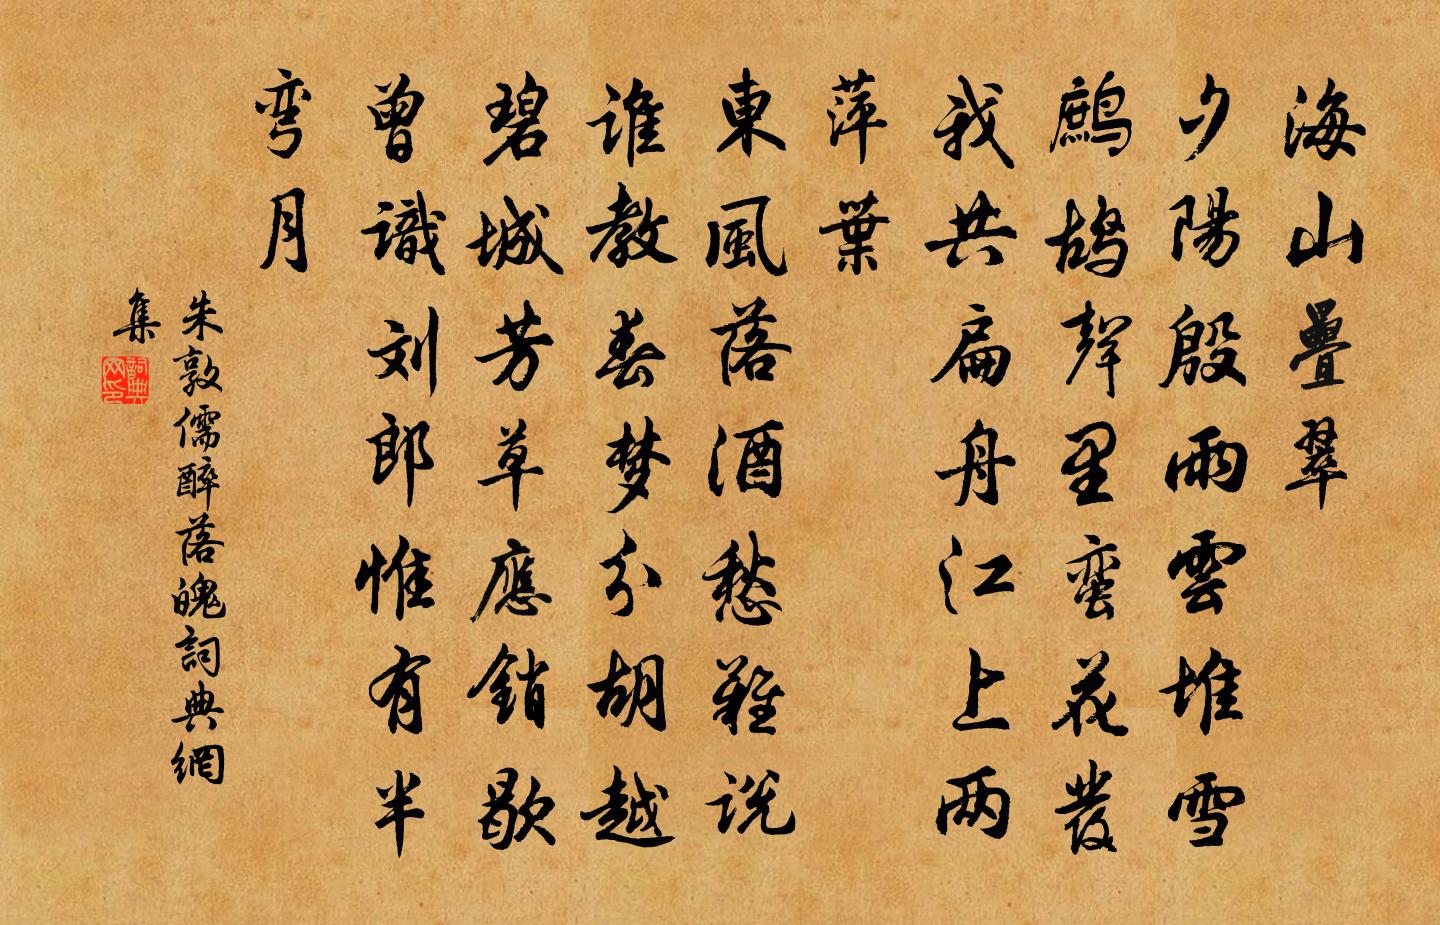 海山疊翠
夕陽殷雨雲堆雪
鷓鴣聲里蛮花發
我共扁舟江上两
萍葉
東風落酒愁難说
谁教春梦分胡越
碧城芳草應銷歇
曾識刘郎惟有半
弯月
朱敦儒醉落魄詞典網
集
詞典網印